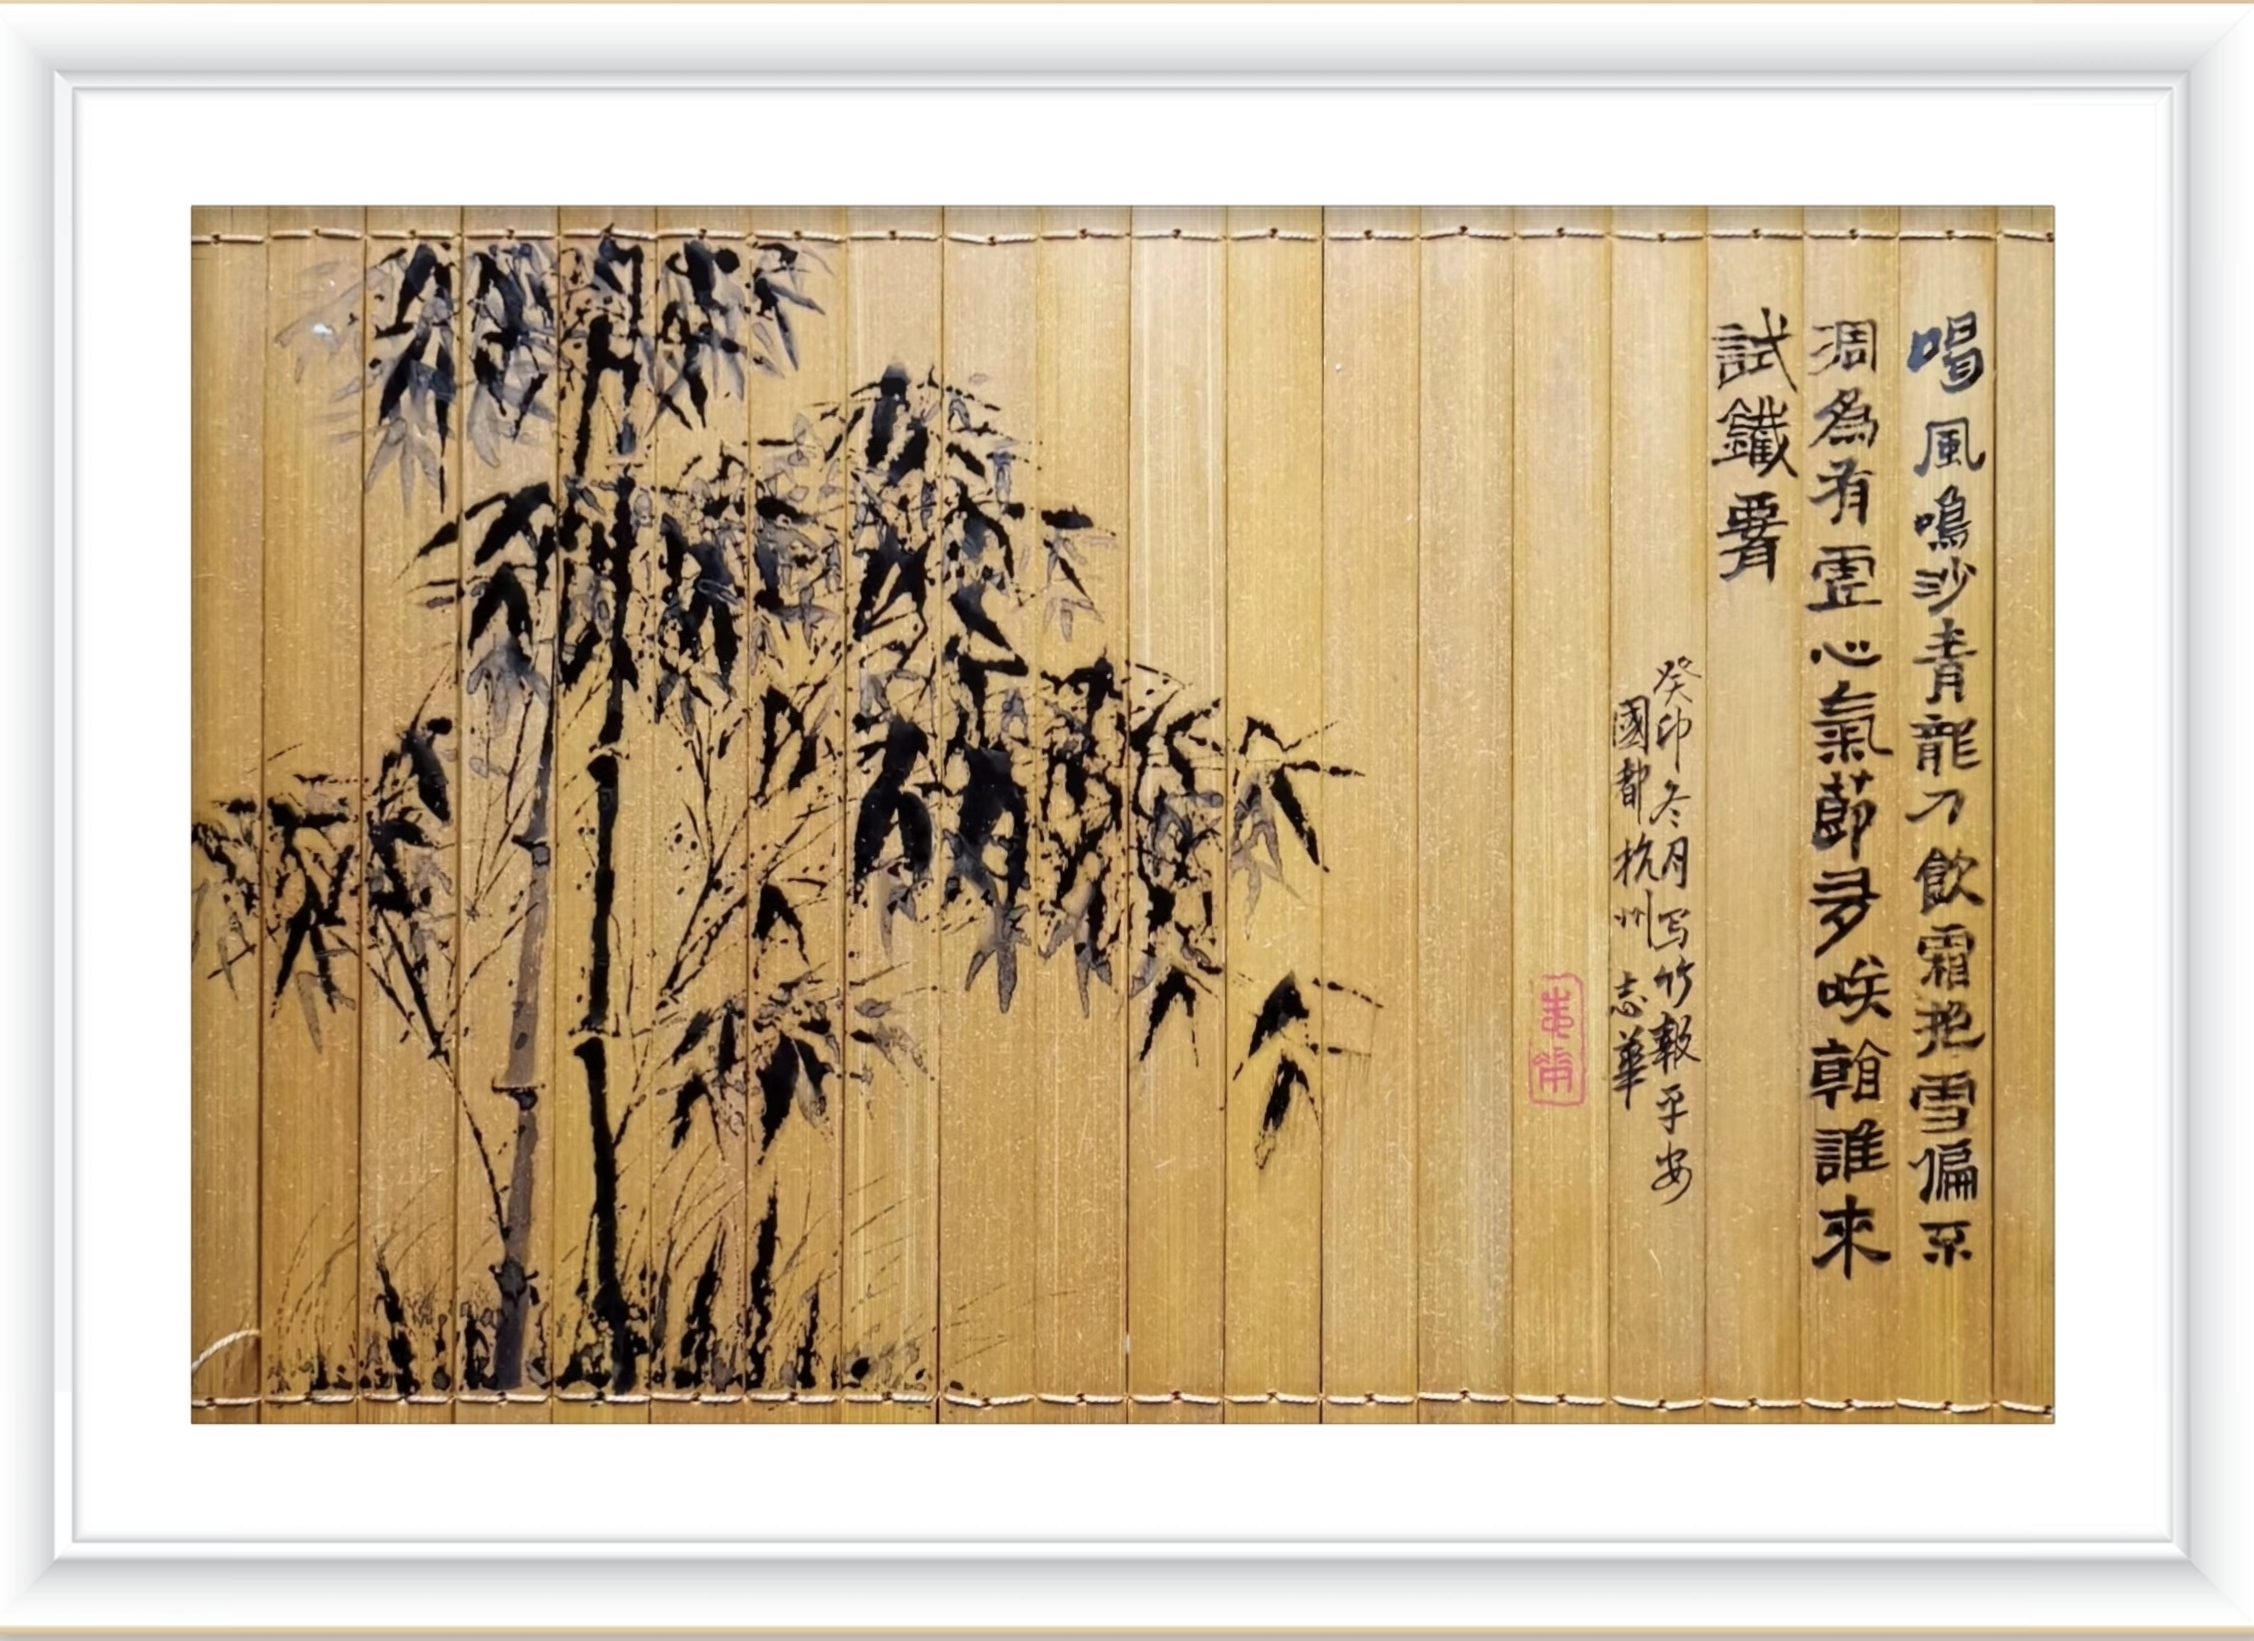 喝風鳴沙青龍刀飲霜抱雪偏不
凋為有虛心氣節多咲朝誰來
試鐵腰
癸卯冬月写竹報平安
國都杭州 志華